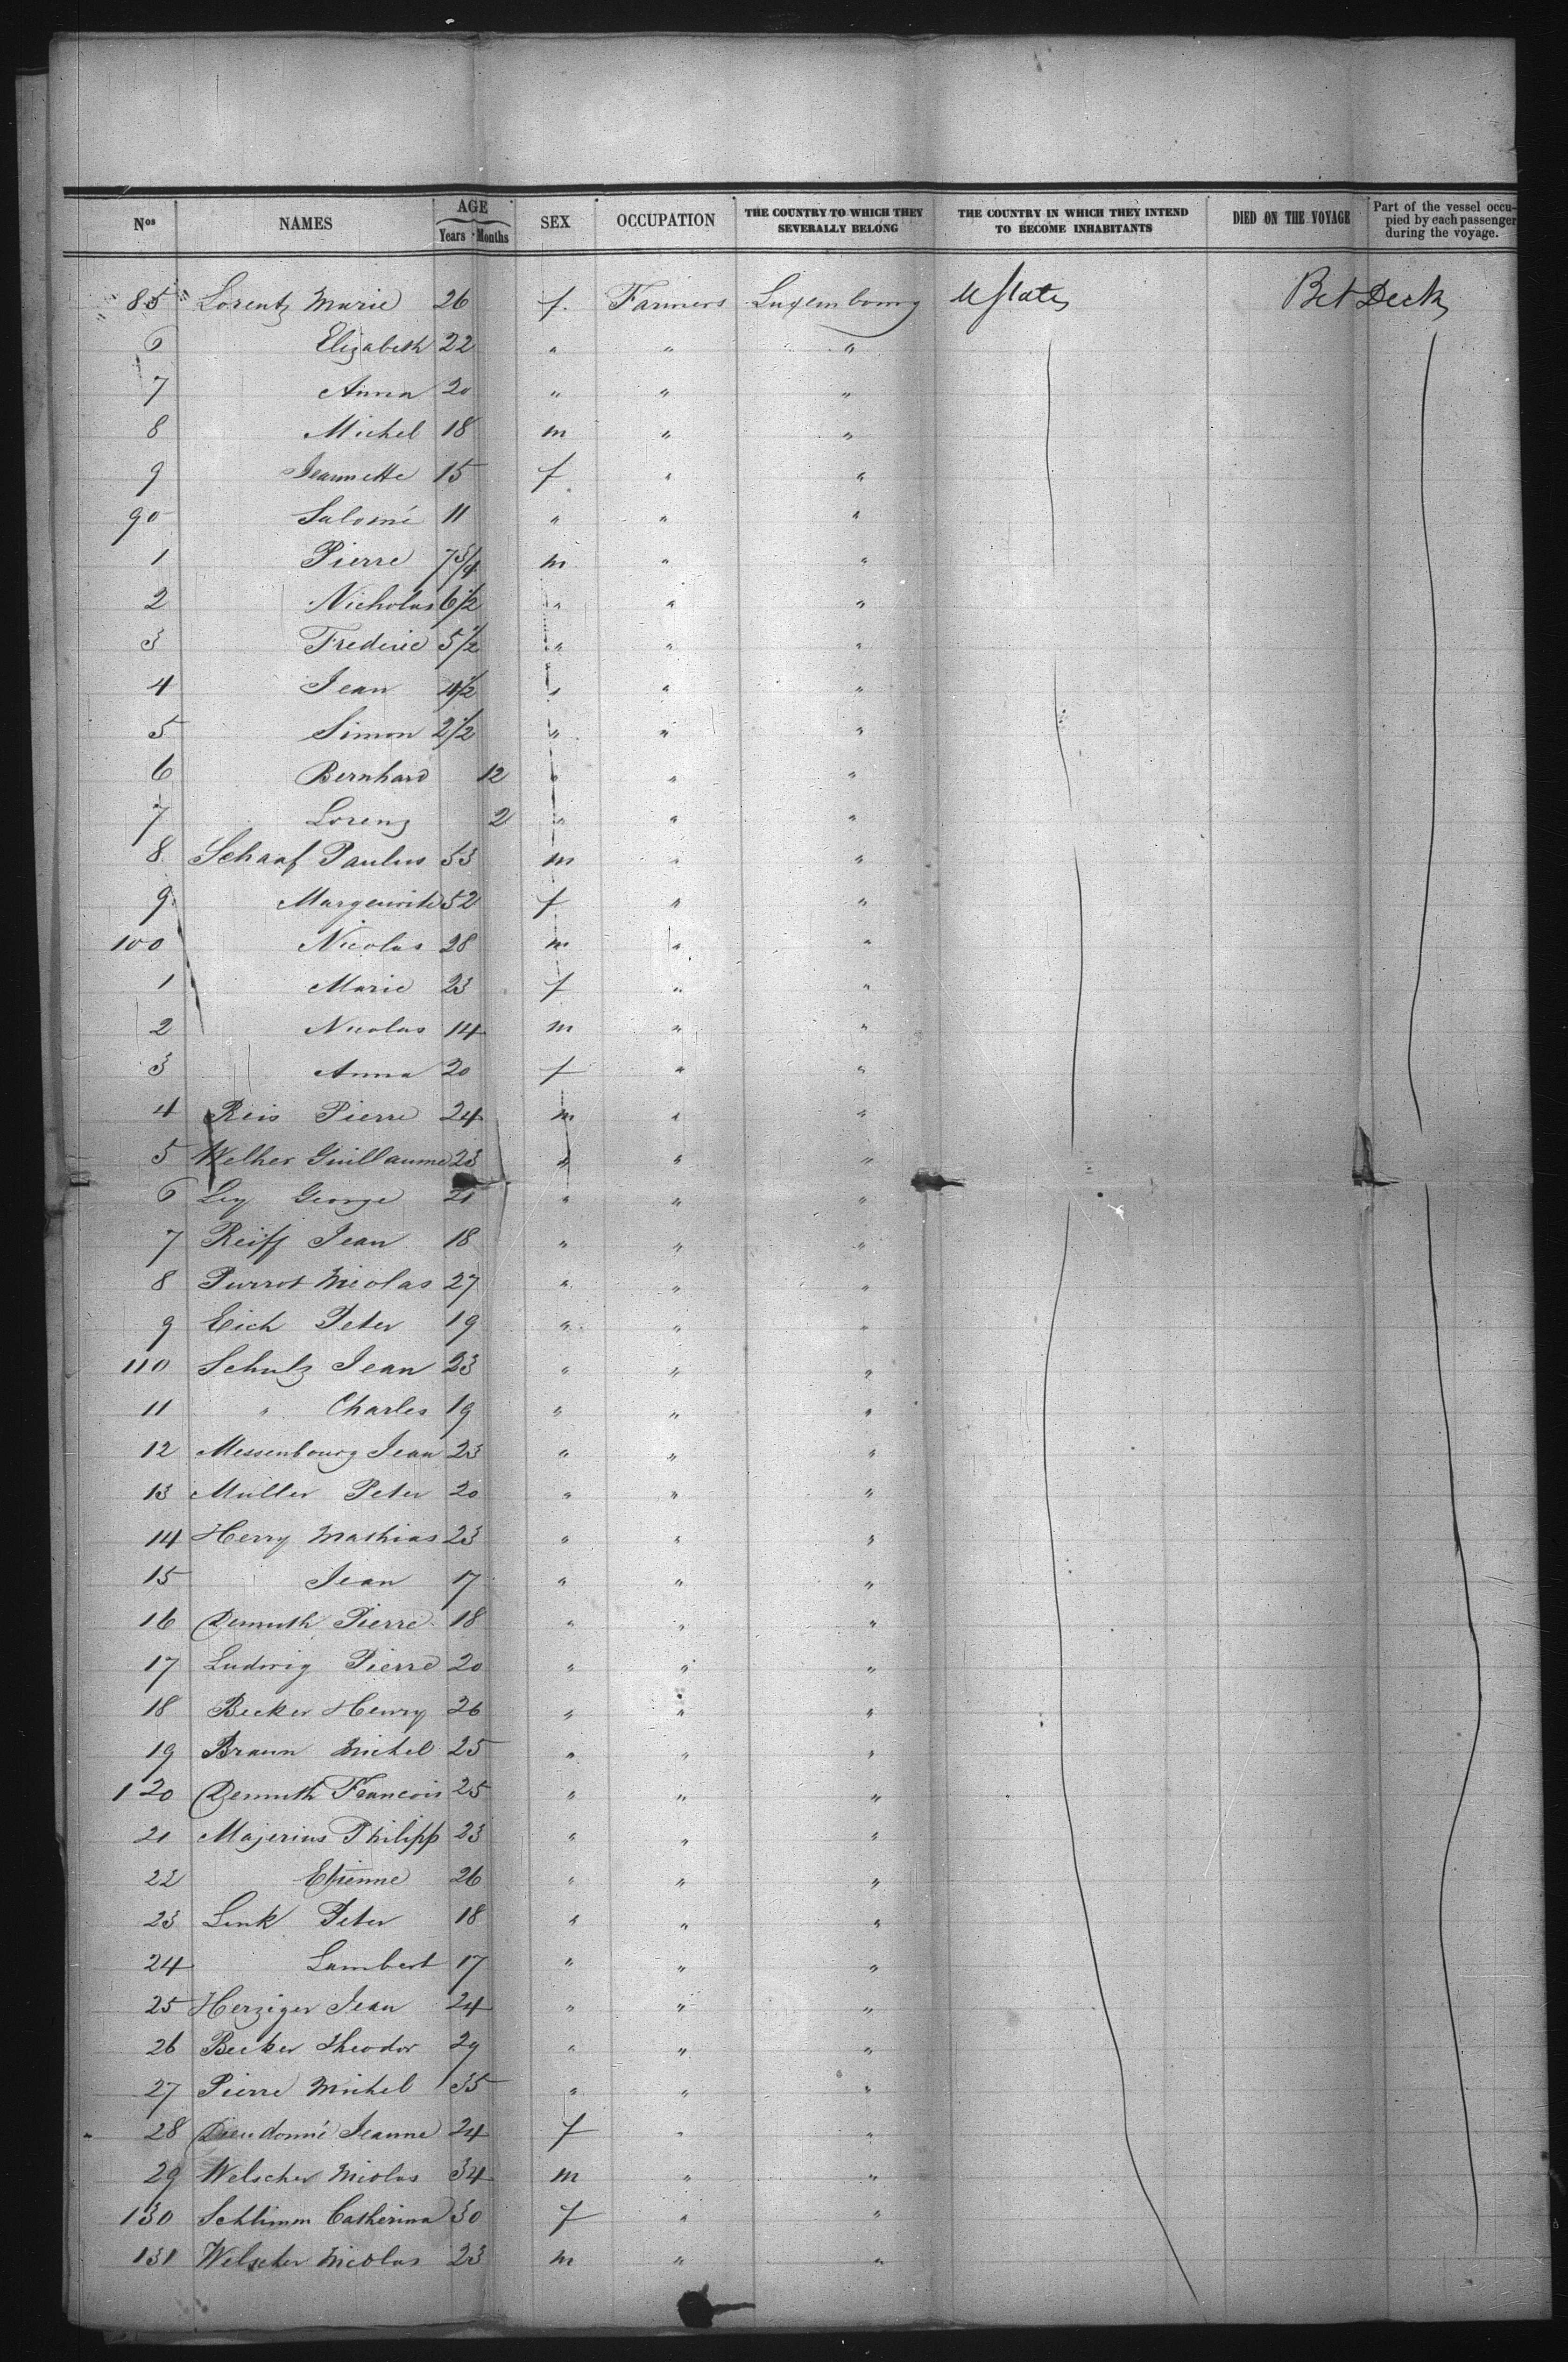 Nos NAMES AGE Years Months SEX OCCUPATION THE COUNTRY TO WHICH THEY SEVERALLY BELONG THE COUNTRY IN WHICH THEY INTEND TO BECOME INHABITANTS DIED ON THE VOYAGE Part of the vessel occupied by each passenger during the voyage.
85 Lorentz Marie 26 f. Farmers Luxembourg U States Bet Deck
6 Elizabeth 22 " " "
7 Anna 20 " " "
8 Michel 18 m " "
9 Jeannette 15 f " "
90 Salomé 11 " " "
1 Pierre 7 3/4 m " "
2 Nicholas 6 1/2 " " "
3 Frederic 5 1/2 " " "
4 Jean 4 1/2 " " "
5 Simon 2 1/2 " " "
6 Bernhard 12 " " "
7 Lorenz 2 " " "
8 Schaaf Paulus 53 m " "
9 Marguerite 52 f " "
100 Nicolas 28 m " "
1 Marie 23 f " "
2 Nicolas 14 m " "
3 Anna 20 f " "
4 Reis Pierre 24 m " "
5 Welher Guillaume 23 " " "
6 Ley George 21 " " "
7 Reiff Jean 18 " " "
8 Purrot Nicolas 27 " " "
9 Eich Peter 19 " " "
110 Schulz Jean 23 " " "
11 " Charles 19 " " "
12 Messenbourg Jean 23 " " "
13 Muller Peter 20 " " "
14 Herry Mathias 23 " " "
15 Jean 17 " " "
16 Demuth Pierre 18 " " "
17 Ludwig Pierre 20 " " "
18 Becker Henry 26 " " "
19 Braun Michel 25 " " "
120 Demuth Francois 25 " " "
21 Majerius Philipp 23 " " "
22 Etienne 26 " " "
23 Link Peter 18 " " "
24 Lambert 17 " " "
25 Herziger Jean 24 " " "
26 Becker Theodor 29 " " "
27 Pierre Michel 35 " " "
28 Dieudonné Jeanne 24 f " "
29 Welscher Nicolas 34 m " "
130 Schlimm Catherina 30 f " "
131 Welscher Nicolas 23 m " "